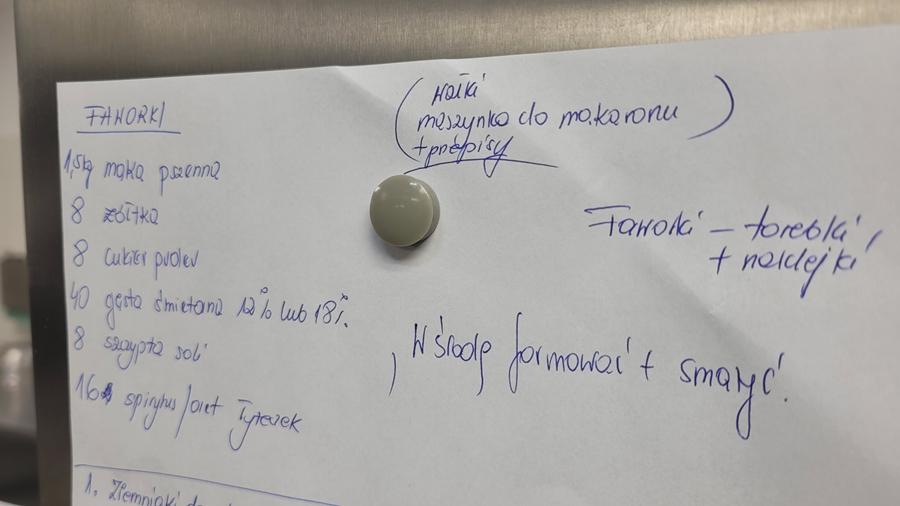 FAWORKI
1,5kg mąka pszenna
8 żółtka
8 cukier
40 gęsta śmietana 12% lub 18%.
8 szczypta soli
16 spirytus/ocet łyżeczek
1. Ziemniaki
(wałki
maszynka do makaronu)
+ przepisy
Faworki – torebki,
+ naklejki
W środę formować + smażyć.